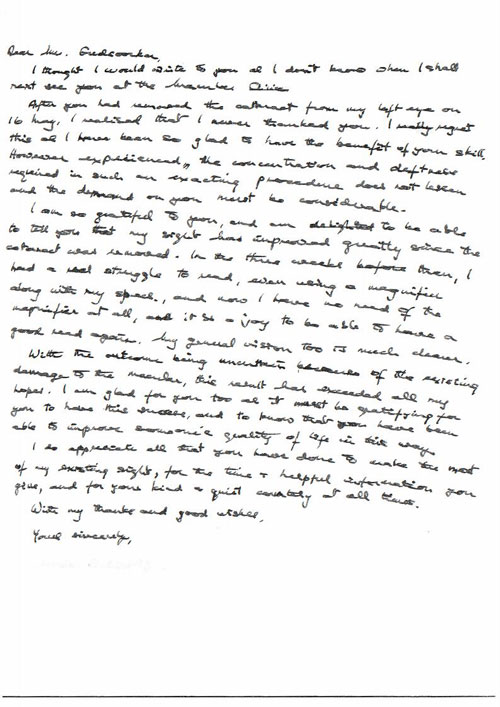 Dear Mr.
I thought I would write to you as I don't know when I shall
next see you at the Macular Clinic
After you had removed the cataract from my left eye on
16 May, I realised that I never thanked you. I really regret
this as I have been so glad to have the benefit of your skill.
However experienced, the concentration and deftness
required in such an exacting procedure does not lessen
and the demand on you must be considerable.
I am so grateful to you, and am delighted to be able
to tell you that my sight has improved greatly since the
cataract was removed. In the three weeks before then, I
had a real struggle to read, even using a magnifier
along with my specs., and now I have no need of the
magnifier at all, and it is a joy to be able to have a
good read again. My general vision too is much clearer.
With the outcome being uncertain because of the existing
damage to the macular, this result has exceeded all my
hopes. I am glad for you too as it must be gratifying for
you to have this success, and to know that you have been
able to improve someone's quality of life in this way.
I so appreciate all that you have done to make the most
of my existing sight, for the time & helpful information you
give, and for your kind & quiet courtesy at all times.
With my thanks and good wishes,
Yours sincerely,